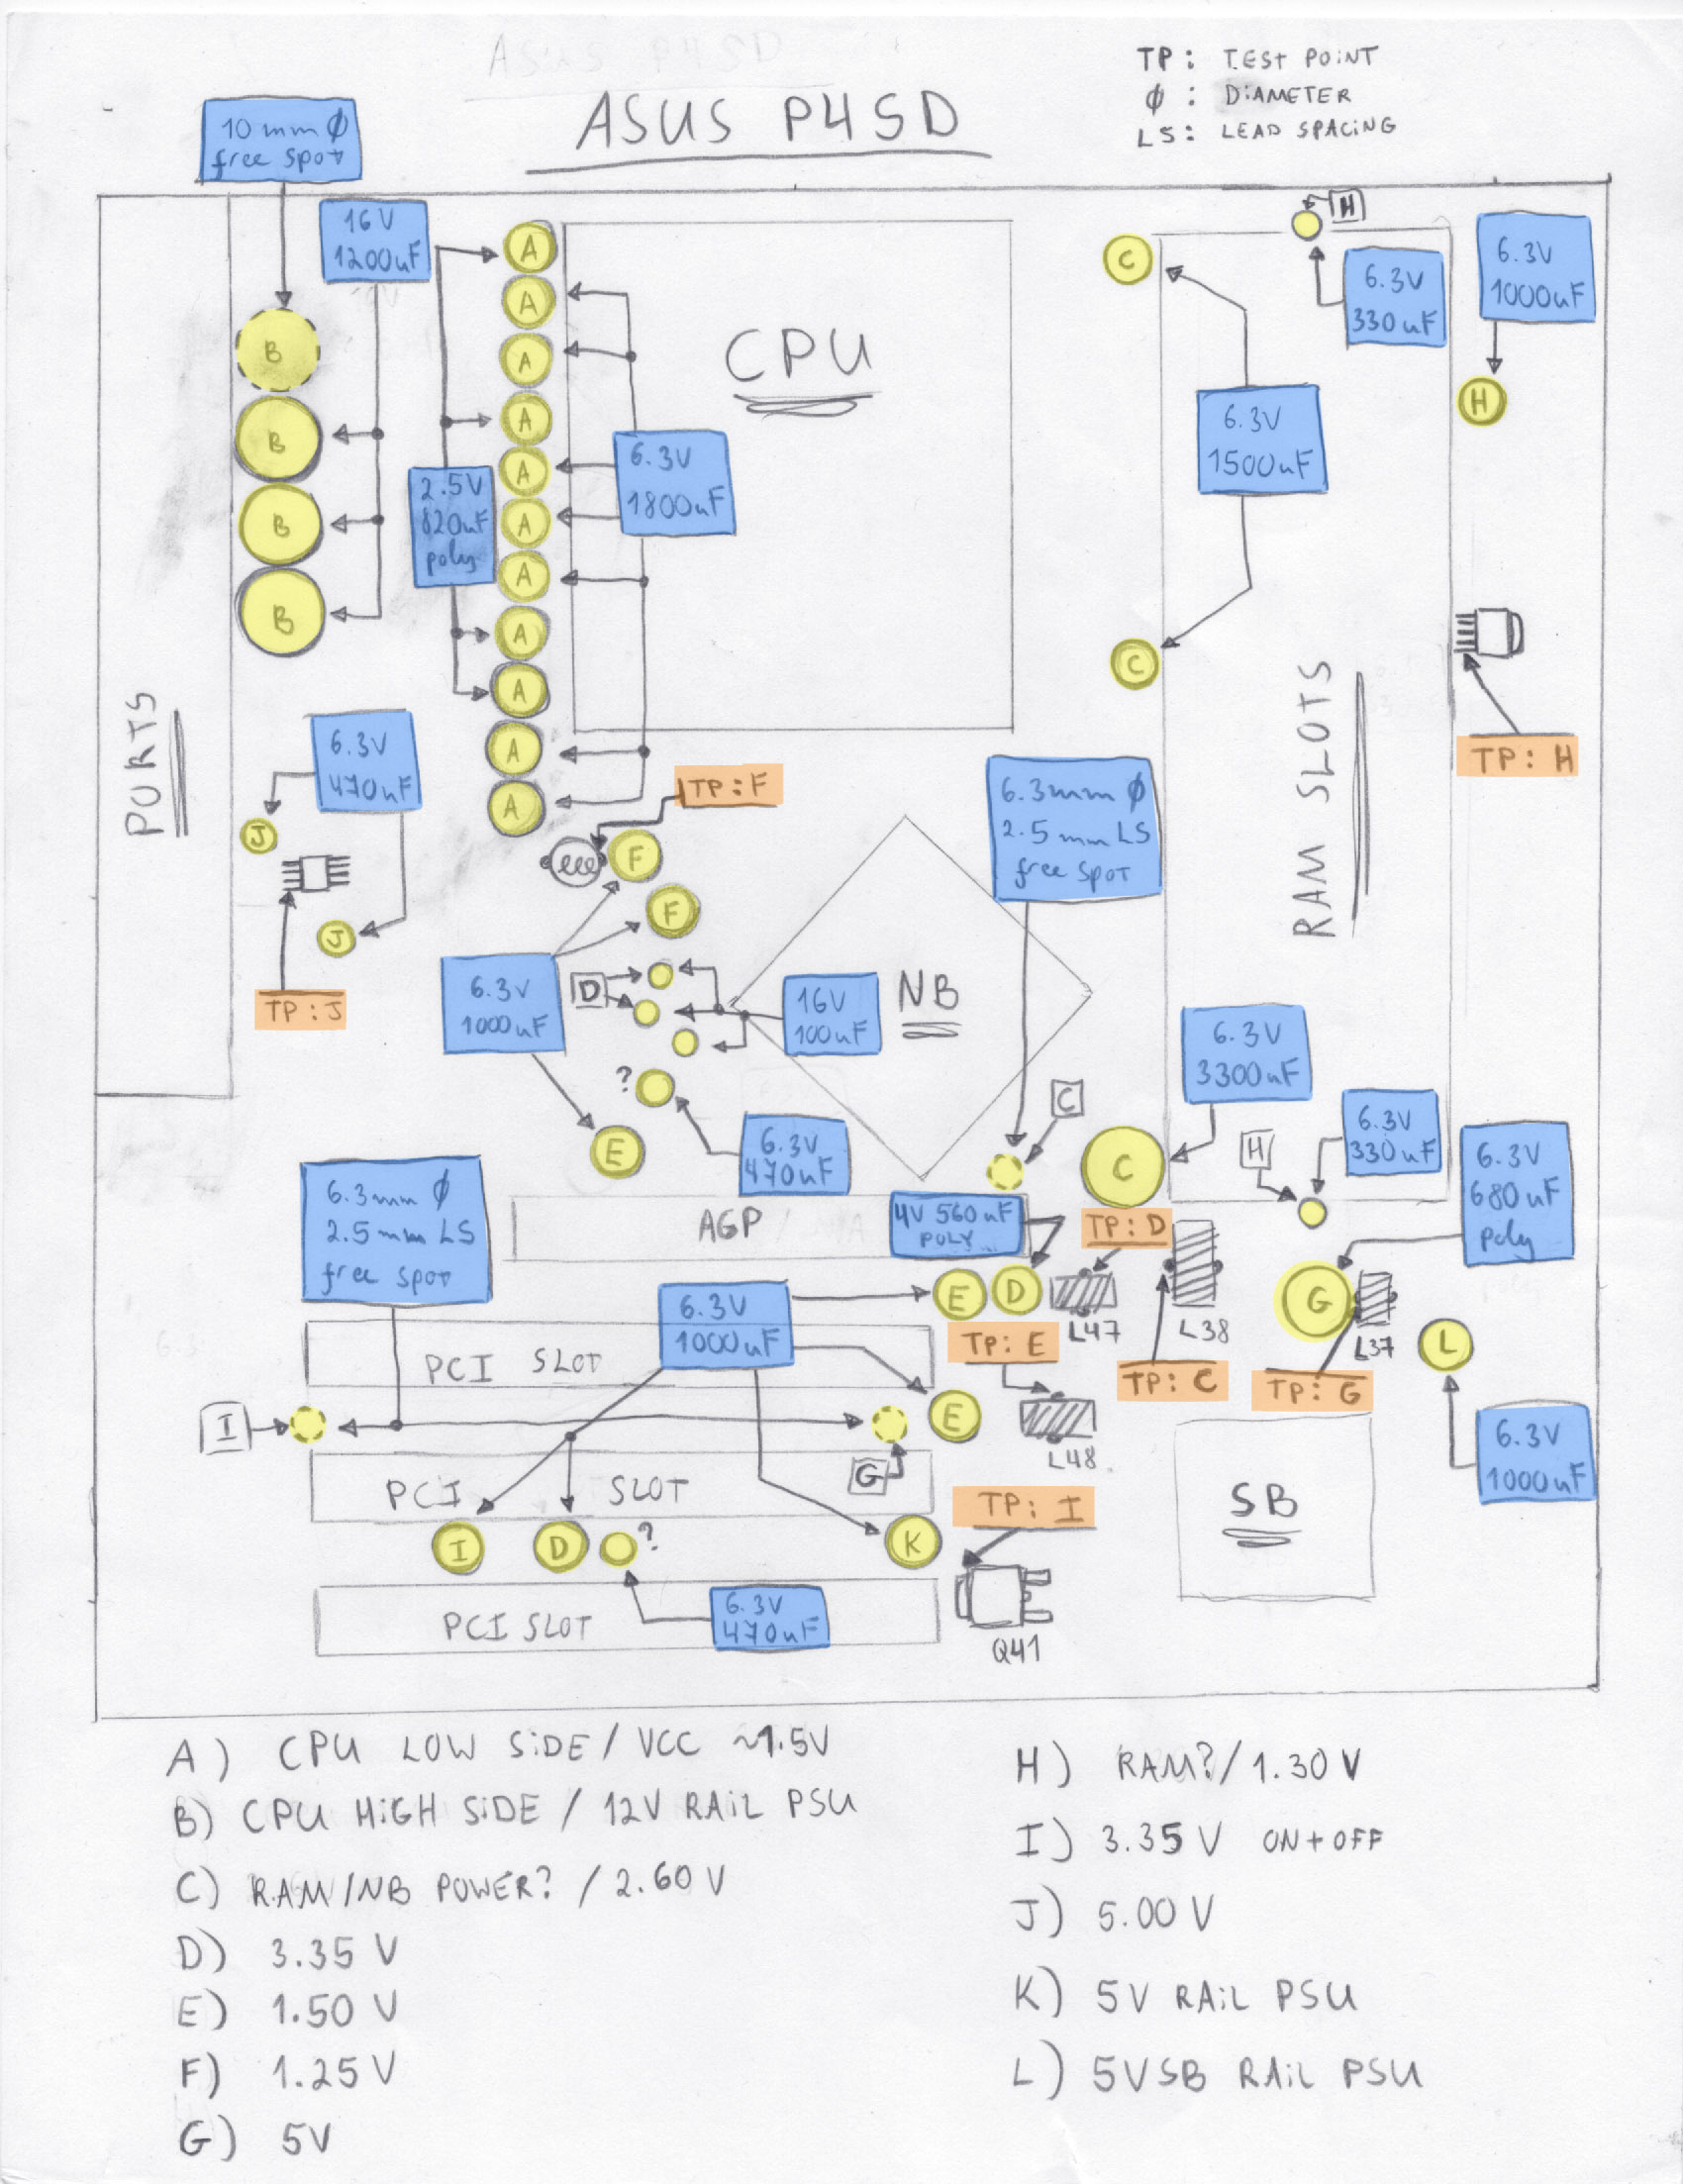 ASUS P4SD
ASUS P4SD
TP: TEST POINT
Φ : DIAMETER
LS: LEAD SPACING
10 mm Φ
free spot
16V
1200uF
A
A
A
A
A
A
A
A
A
A
A
B
B
B
B
CPU
2.5V
820uF
poly
6.3V
1800uF
C
H
6.3V
330uF
6.3V
1000uF
H
6.3V
1500uF
C
TP: H
PORTS
RAM SLOTS
6.3V
470uF
J
J
TP: J
TP: F
F
F
6.3V
1000uF
D
16V
100uF
NB
6.3mm Φ
2.5mm LS
free spot
?
E
6.3V
470uF
C
C
6.3V
3300uF
H
6.3V
330uF
6.3V
680uF
poly
6.3mm Φ
2.5mm LS
free spot
AGP
4V 560uF
POLY
TP: D
E
D
L47
L38
G
L37
L
6.3V
1000uF
TP: E
TP: C
TP: G
PCI SLOT
I
G
E
L48
6.3V
1000uF
PCI SLOT
TP: I
SB
I
D
?
K
PCI SLOT
6.3V
470uF
Q41
A) CPU LOW SiDE / VCC ~1.5V
B) CPU HiGH SiDE / 12V RAiL PSU
C) RAM/NB POWER? / 2.60 V
D) 3.35 V
E) 1.50 V
F) 1.25 V
G) 5V
H) RAM?/1.30 V
I) 3.35 V ON+OFF
J) 5.00 V
K) 5V RAiL PSU
L) 5VSB RAiL PSU